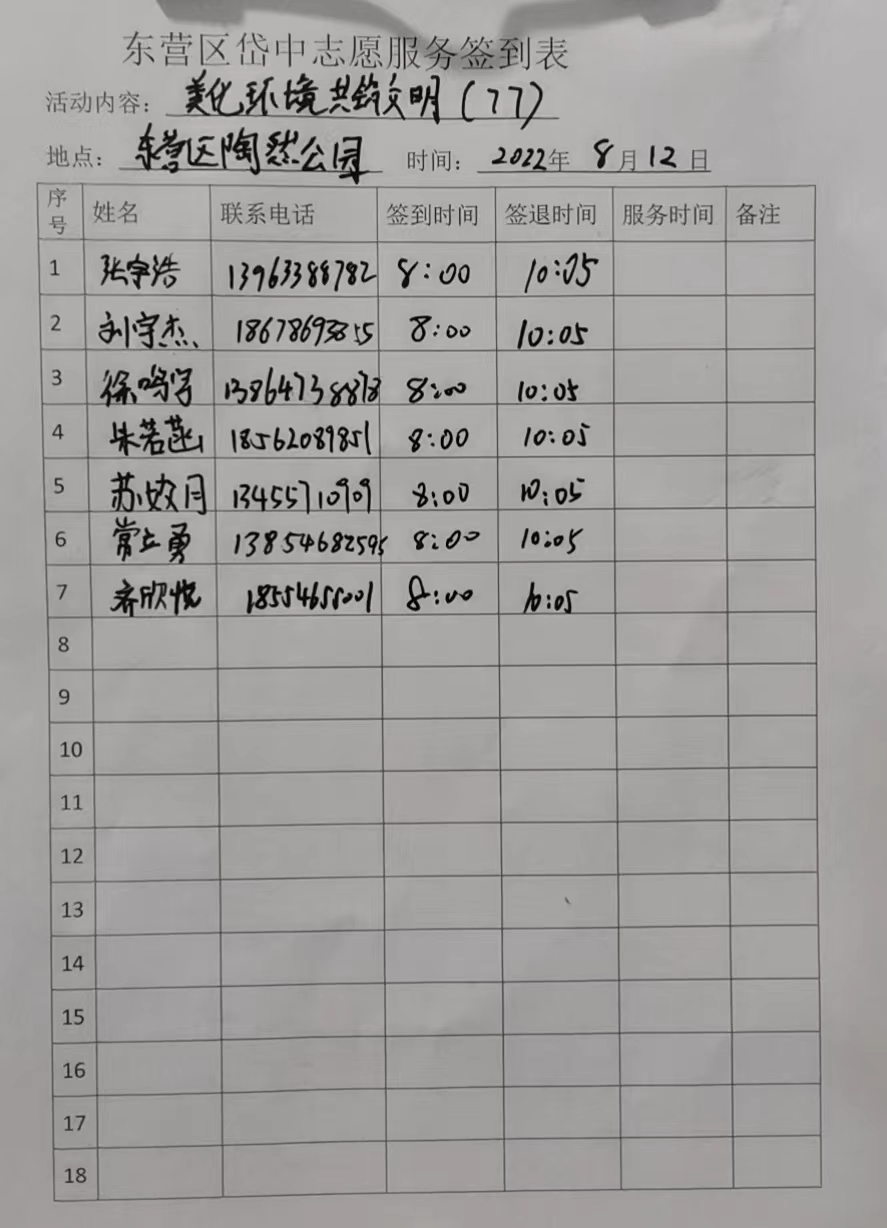 东营区岱中志愿服务签到表
活动内容：美化环境共筑文明（77）
地点：东营区陶然公园 时间：2022年 8月12日
序号 姓名 联系电话 签到时间 签退时间 服务时间 备注
1 张宇浩 13963388782 8:00 10:05
2 刘宇杰 8:00 10:05
3 徐鸣宇 8:00 10:05
4 朱若菡 18562089851 8:00 10:05
5 苏 月 13455710909 8:00 10:05
6 常立勇 13854682595 8:00 10:05
7 齐欣悦 8:00 10:05
8
9
10
11
12
13
14
15
16
17
18